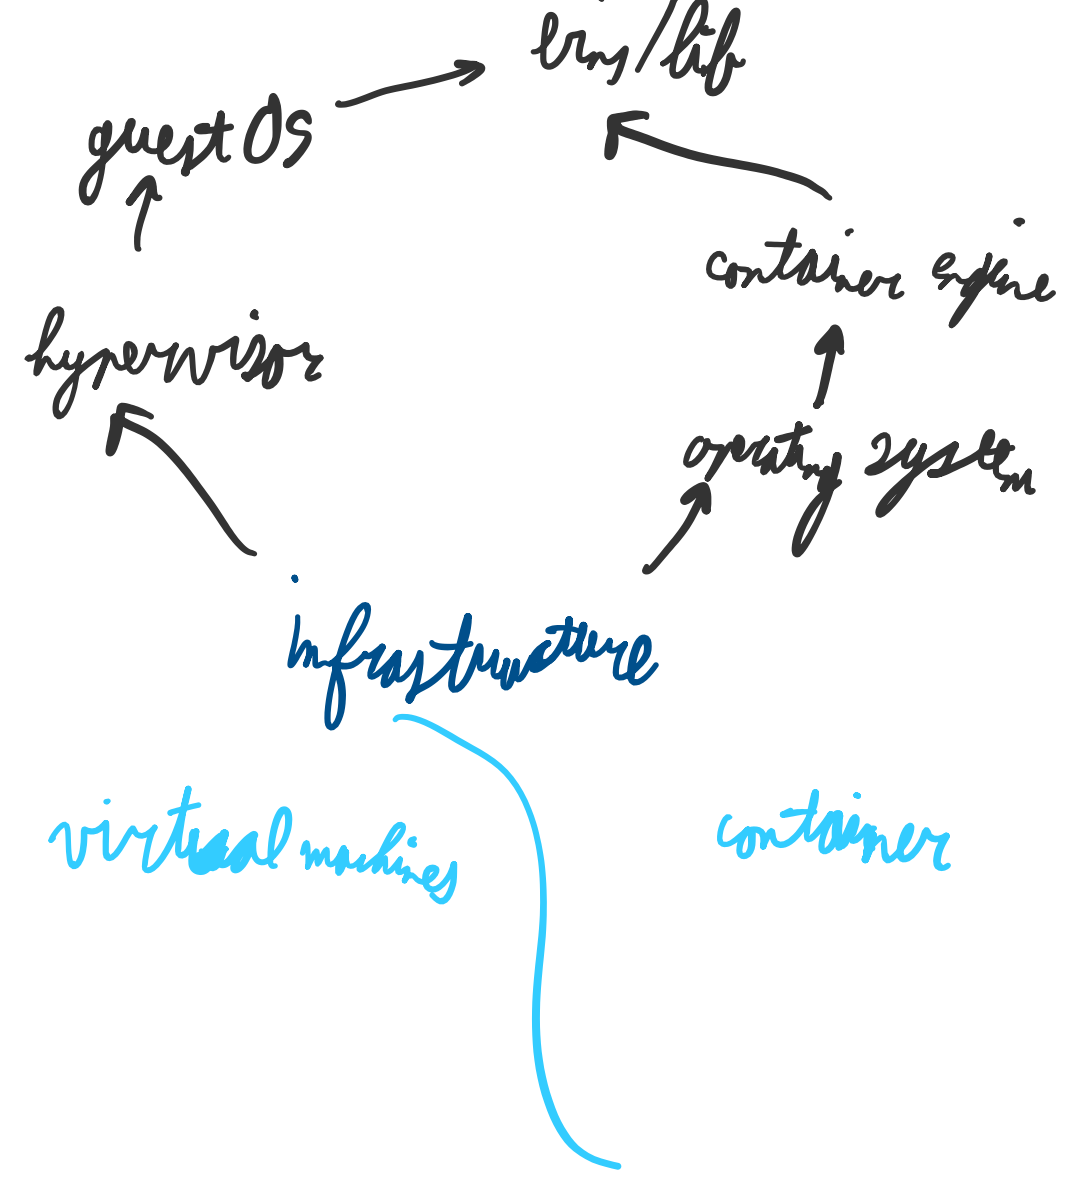 bins/lib
guest OS
container engine
hypervisor
operating system
infrastructure
virtual machines
container